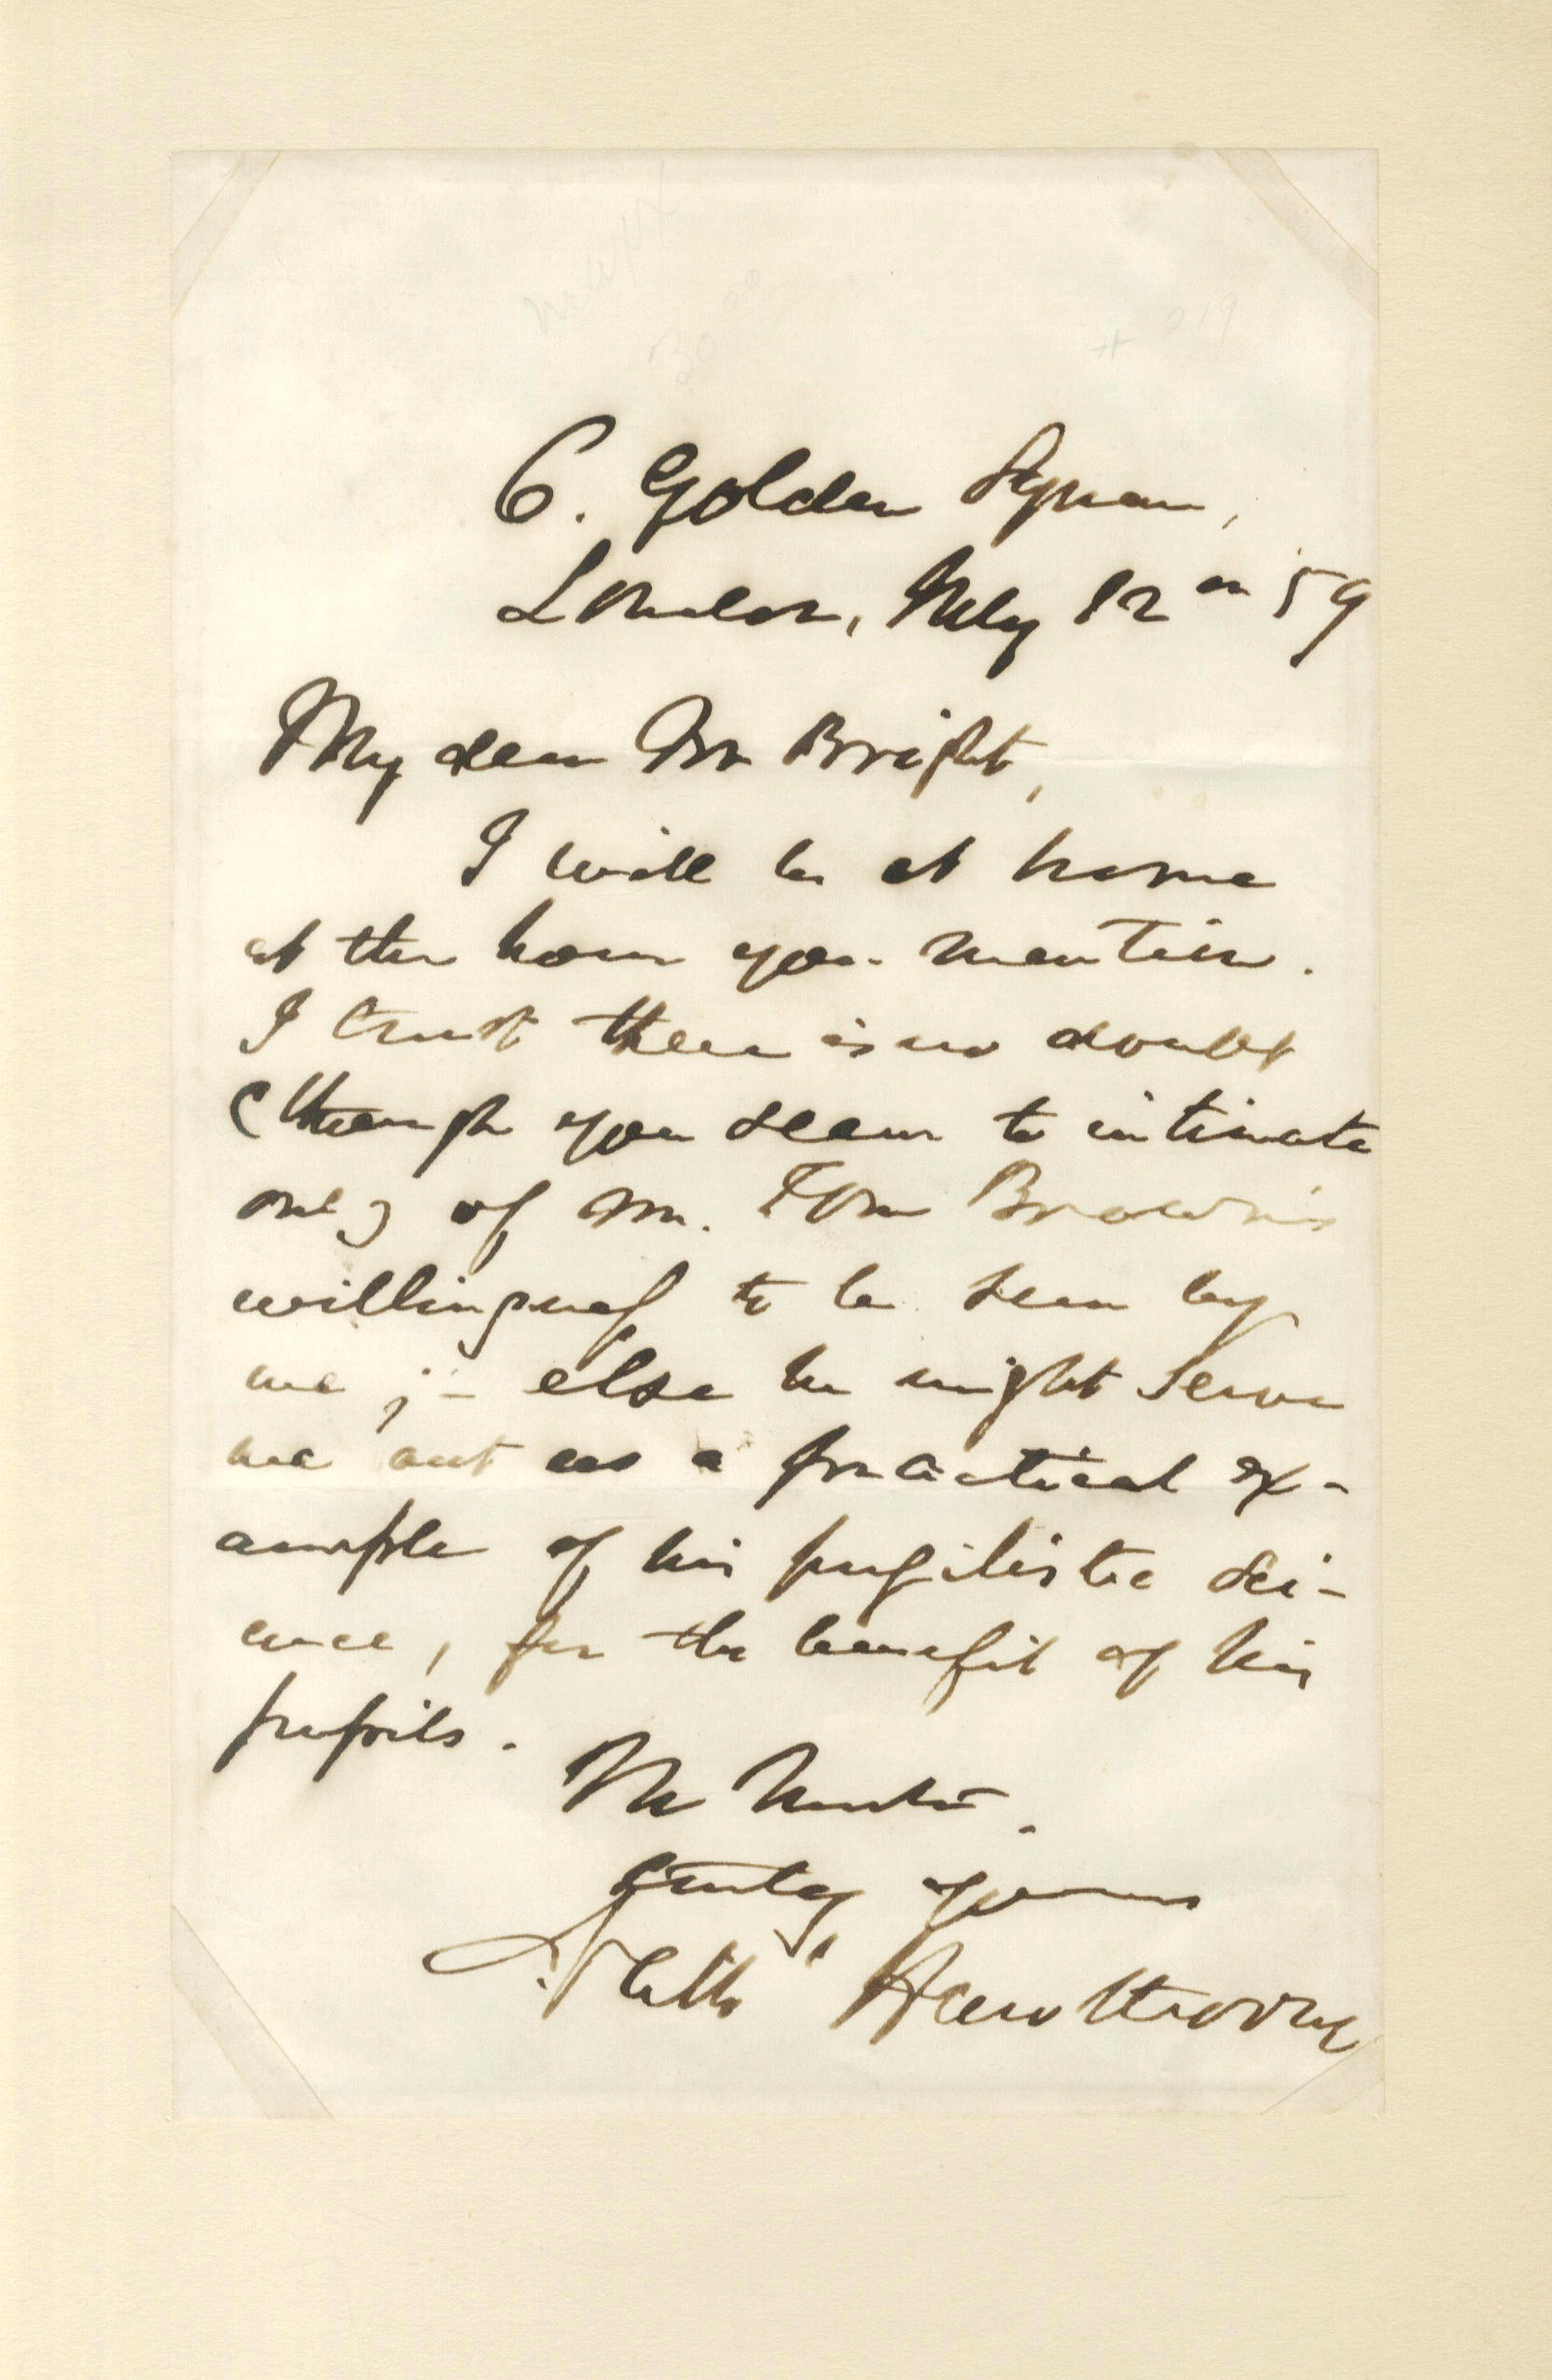 6. Golden Square,
London, July 12th '59
My dear Mr Bright,
I will be at home
at the hour you mention.
I trust there is no doubt
(though you seem to intimate
one) of Mr. Tom Brown's
willingness to be seen by
me ;- else he might serve
me out as a practical ex-
ample of his pugilistic sci-
ence, for the benefit of his
pupils.
In haste.
Truly yours
Nathl Hawthorne